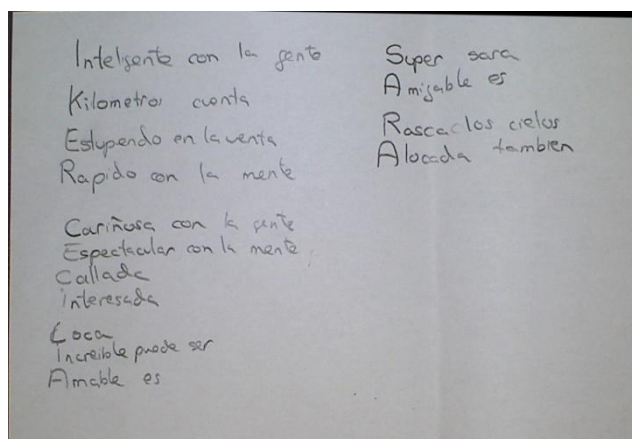 Inteligente con la gente
Kilometros cuenta
Estupendo en la venta
Rapido con la mente
Cariñosa con la gente
Espectacular con la mente
Callada
interesada
Loca
increible puede ser
Amable es
Super sara
Amigable es
Rasca los cielos
Alocada tambien